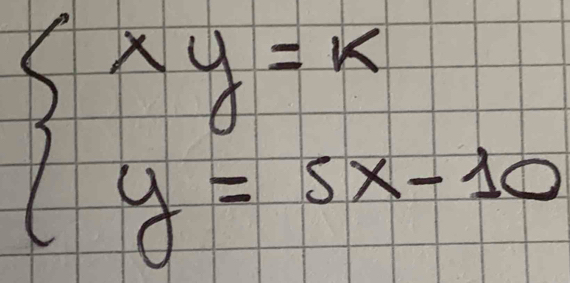 xy = k
y = 5x - 10